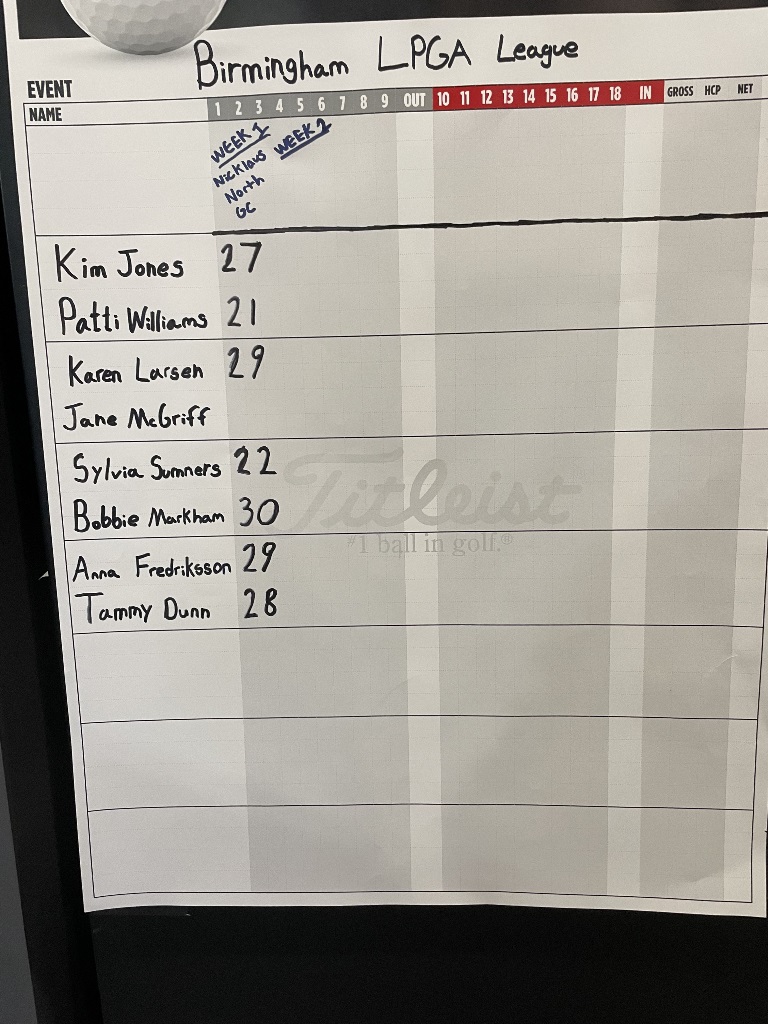 Birmingham LPGA League
EVENT
NAME 1 2 3 4 5 6 7 8 9 OUT 10 11 12 13 14 15 16 17 18 IN GROSS HCP NET
WEEK 1 WEEK 2
Nicklaus
North
GC
Kim Jones 27
Patti Williams 21
Karen Larsen 29
Jane McGriff
Sylvia Sumners 22
Bobbie Markham 30
Titleist
#1 ball in golf.®
Anna Fredriksson 29
Tammy Dunn 28